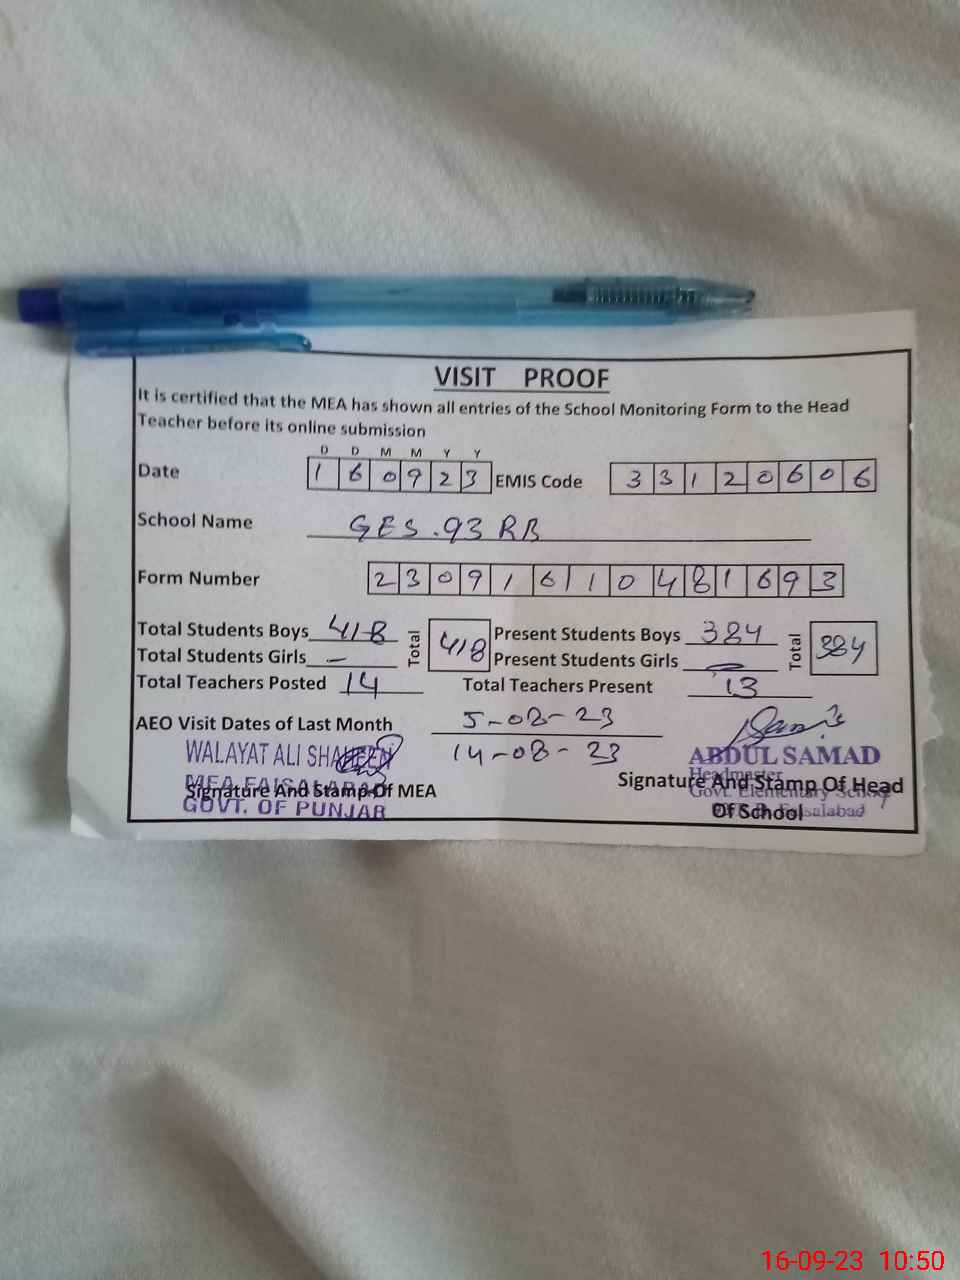 VISIT PROOF
It is certified that the MEA has shown all entries of the School Monitoring Form to the Head
Teacher before its online submission
D D M M Y Y
Date 1 6 0 9 2 3 EMIS Code 3 3 1 2 0 6 0 6
School Name GES.93 RB
Form Number 2 3 0 9 1 6 1 0 4 8 1 6 9 3
Total Students Boys 418 Total 418 Present Students Boys 384 Total 384
Total Students Girls — Present Students Girls —
Total Teachers Posted 14 Total Teachers Present 13
AEO Visit Dates of Last Month 5-08-23
14-08-23
WALAYAT ALI SHAHEEN
MEA FAISALABAD
Signature And Stamp Of MEA
GOVT. OF PUNJAB
ABDUL SAMAD
Headmaster
Signature And Stamp Of Head
Govt. Elementary School
Of School
Faisalabad
16-09-23 10:50